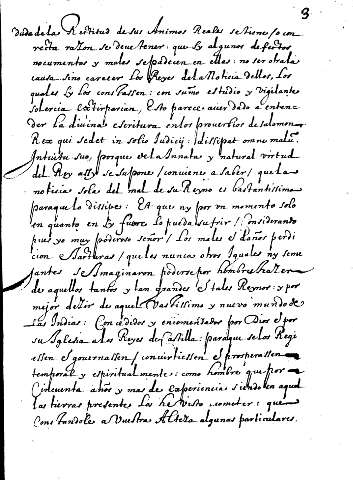 8
dada de la Rectitud de sus Animos Reales se tiene / o con
recta razon se deve tener: que sy algunos defectos
nocumentos y males se padecen en ellos: no ser otra la
causa sino carecer los Reyes de la Noticia dellos, Los
quales sy les constassen: con sumo estudio y vigilante
solercia extirparian. Esto parece aver dado a enten
der la divina escritura en los proverbios de Salomon
Rex qui sedet in solio Judicij: dissipat omne malũ.
Intuitu suo, porque de la Innata y natural virtud
del Rey assy se supone / conviene a saber / que la
noticia sola del mal de su Reyno es bastantissima
para que lo dissipe: E que ny por un momento solo
en quanto en sy fuere lo pueda sufrir / Considerando
pues yo muy poderoso señor / Los males e daños perdi
cion e Jacturas / que los nunca otros Iguales ny seme
jantes se Imaginaron poderse por hombres hazer
de aquellos tantos y tan grandes e tales Reynos: y por
mejor dezir de aquel Vastissimo y nuevo mundo de
las Indias: Concedidos y encomendados por Dios e por
su Iglesia a los Reyes de Castilla: para que se los Regi
essen e governassen / conviertiessen e prosperassen
temporal y espiritualmente: como hombre que por
Cincuenta años y mas de experiencia siendo en aquel
las tierras presente los he visto cometer: que
constandole a Vuestra Alteza algunas particulares.